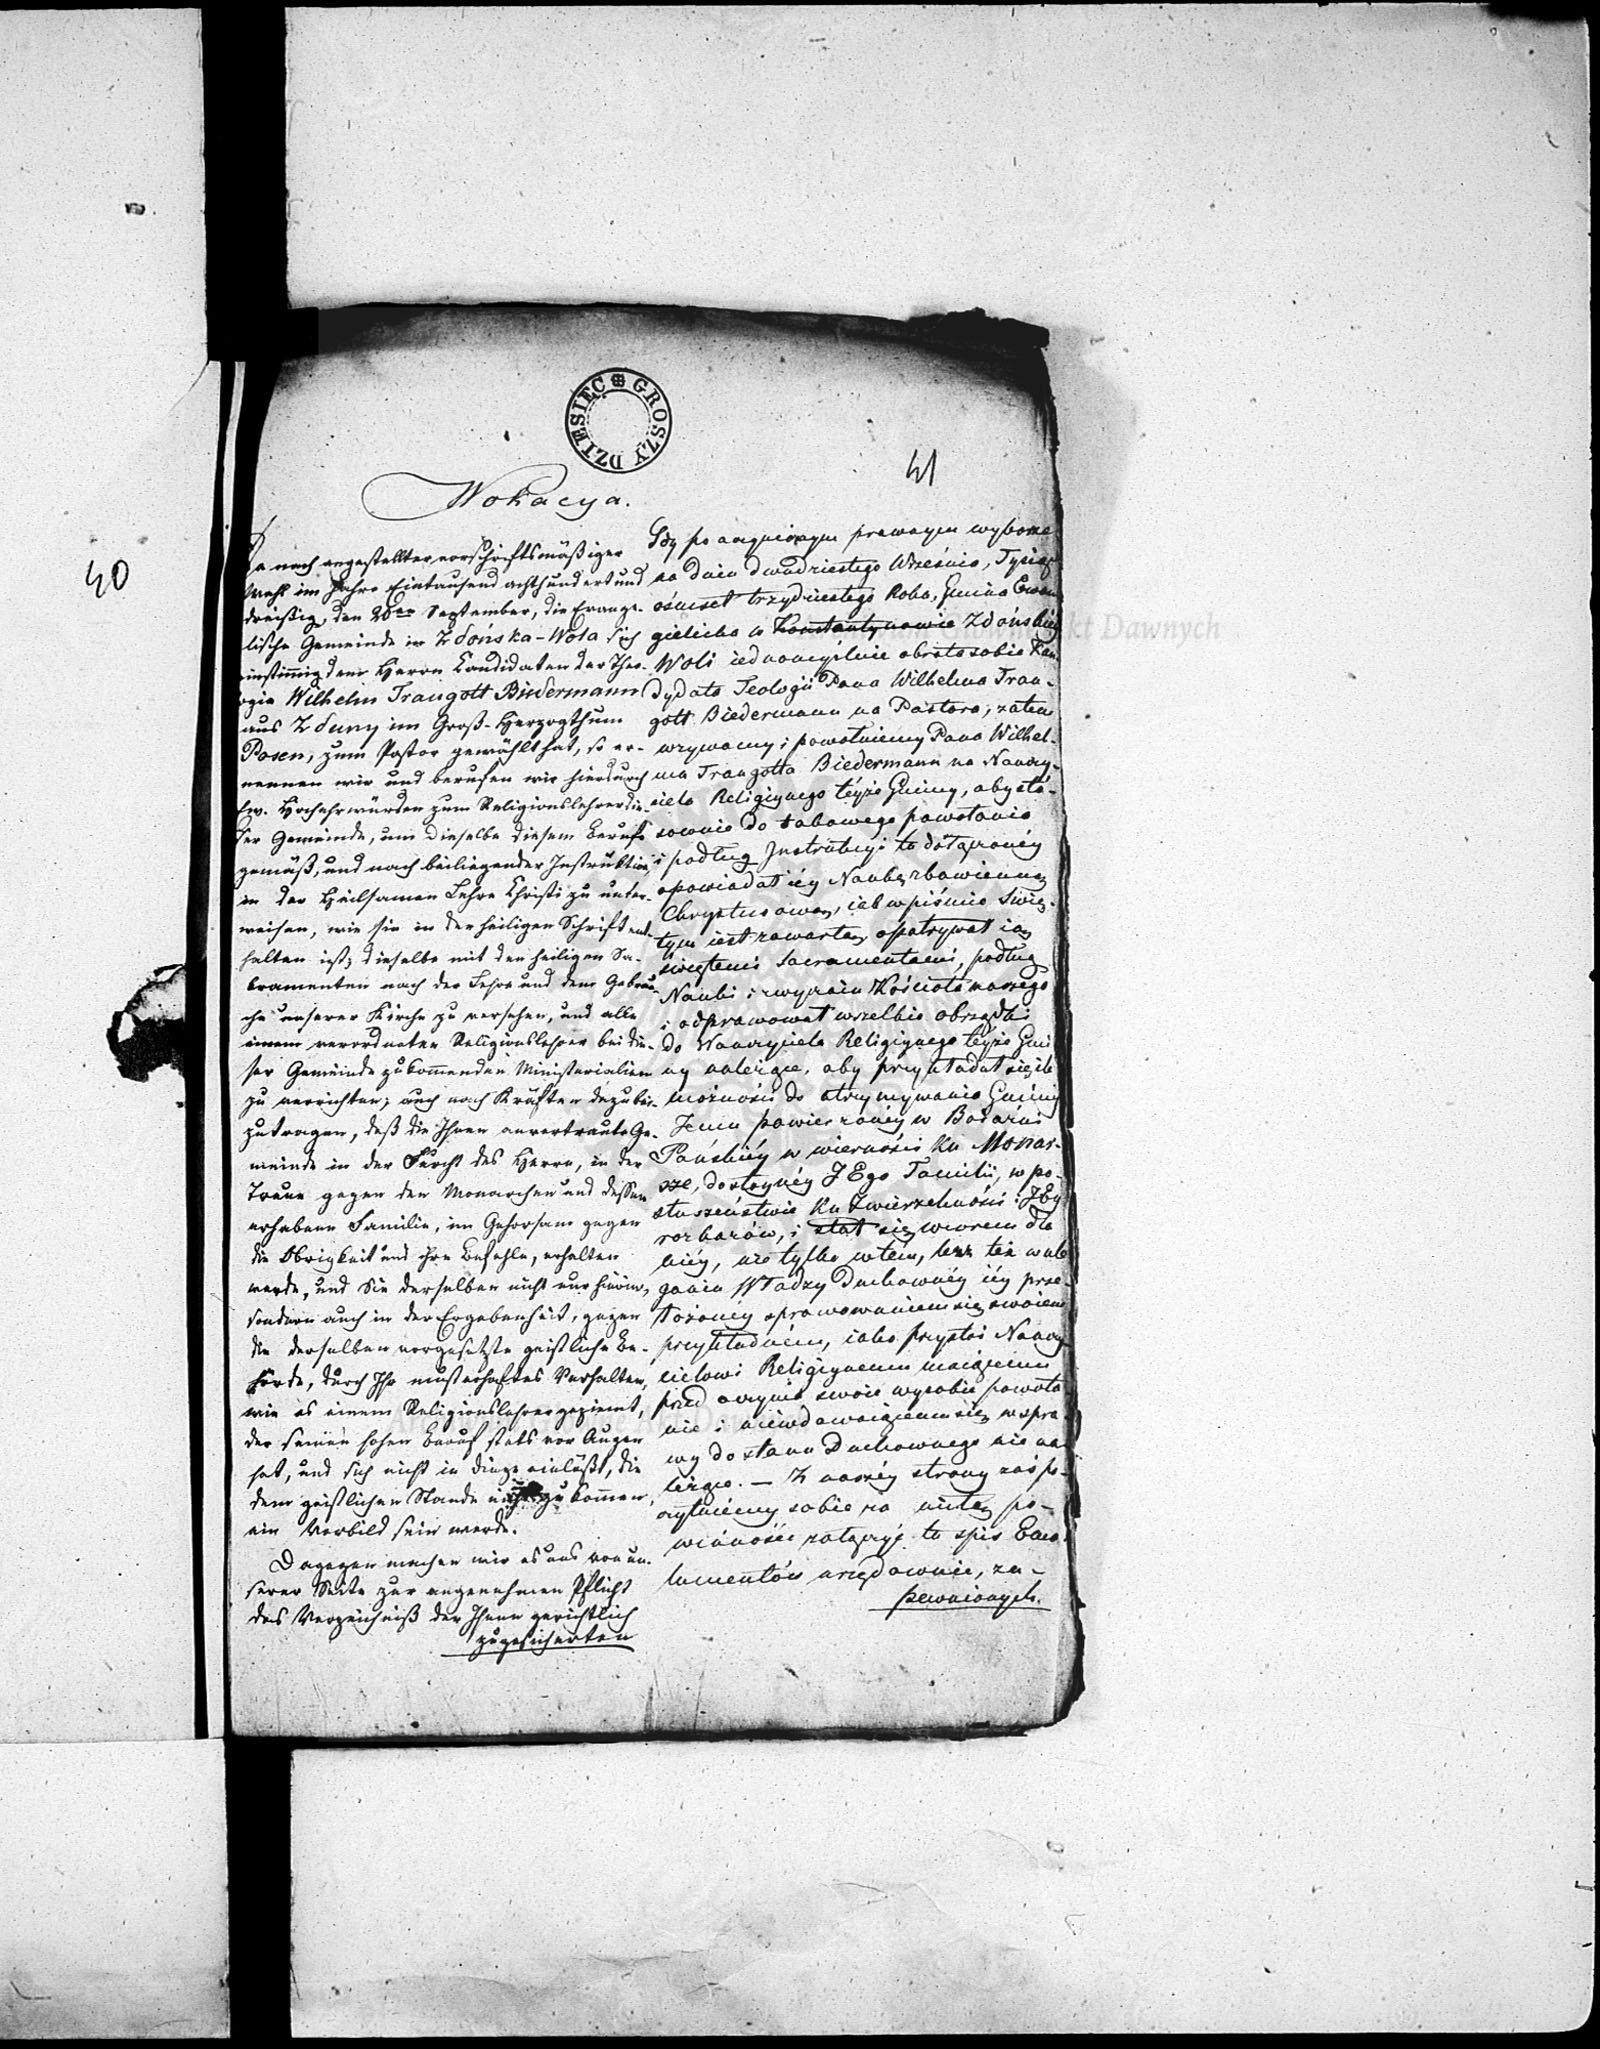 40
41
GROSZY DZIESIĘC
Wokacya.
Da nach angestellter vorschriftsmäßiger
Wahl im Jahre Eintausend achthundert und
dreißig, den 20ten September, die Evange-
lische Gemeinde in Zdońska-Wola sich
einstimmig den Herrn Kandidaten der Theo-
logie Wilhelm Traugott Biedermann
aus Zduny im Groß-Herzogthum
Posen, zum Pastor gewählt hat, so er-
nennen wir und berufen wir hierdurch
Ew. Hochehrwürden zum Religionslehrer die-
ser Gemeinde, um dieselbe diesem Berufe
gemäß, und nach beiliegender Instruktion,
in der heilsamen Lehre Christi zu unter-
weisen, wie sie in der heiligen Schrift ent-
halten ist; dieselbe mit den heiligen Sa-
kramenten nach der Lehre und dem Gebrau-
che unserer Kirche zu versehen, und alle
einem verordneten Religionslehrer bei die-
ser Gemeinde zukommenden Ministerialien
zu verrichten; auch nach Kräften dazu bei-
zutragen, daß die Ihnen anvertraute Ge-
meinde in der Furcht des Herrn, in der
Treue gegen den Monarchen und dessen
erhabene Familie, im Gehorsam gegen
die Obrigkeit und ihre Befehle, erhalten
werde, und Sie derselben nicht nur hierin,
sondern auch in der Ergebenheit, gegen
die derselben vorgesetzte geistliche Be-
hörde, durch Ihr musterhaftes Verhalten,
wie es einem Religionslehrer geziemt,
der seinen hohen Beruf stets vor Augen
hat, und sich nicht in Dinge einläßt, die
dem geistlichen Stande nicht zukommen,
ein Vorbild sein werde.
Dagegen machen wir es uns von un-
serer Seite zur angenehmen Pflicht
das Verzeichniß der Ihnen gerichtlich
zugesicherten
Gdy po uczynionym prawnym wyborze
na dniu dwudziestego Września, Tysiąc
ośmset trzydziestego Roku, Gmina Ewan-
gielicka w Konstantynowie Zdońskiéy
Woli iednomyślnie obrała sobie Kan-
dydata Teologii Pana Wilhelma Trau-
gott Biedermann na Pastora; zatem
wzywamy i powołuiemy Pana Wilhel-
ma Traugotta Biedermann na Nauczy-
ciela Religiynego téyże Gminy, aby stó-
sownie do takowego powołania
i podług Instrukcyi tu dołączonéy
opowiadał iéy Naukę zbawienną
Chrystusową, iak w piśmie Świę-
tym iest zawartą, opatrywał ią
świętemi Sacramentami, podług
Nauki i zwyczaiu Kościoła naszego
i odprawował wszelkie obrządki
do Nauczyciela Religiynego téyże Gmi
ny należące, aby przykładał się ile
możności do utrzymywania Gminy
Jemu powierzonéy w Bojaźni
Pańskiéy w wierności ku Monar-
sze, dostoynéy JEgo Familii, w po-
słuszeństwie ku Zwierzchności i Jéy
rozkazów, i stał się wzorem dla
niéy, nie tylko w tem, lecz też w ule
ganiu Władzy Duchownéy iéy prze-
łożonéy sprawowaniem się swoiem
przykładném, iako przystoi Nauczy
cielowi Religiynemu maiącemu
przed oczyma swoie wysokie powoła
nie i niewdawaiącemu się w spra
wy do stanu Duchownego nie na
leżące. — Z naszéy strony zaś po-
czytuiemy sobie za miłą po-
winność załączyć tu spis Emo-
lumentów urzędownie, za-
pewnionych.